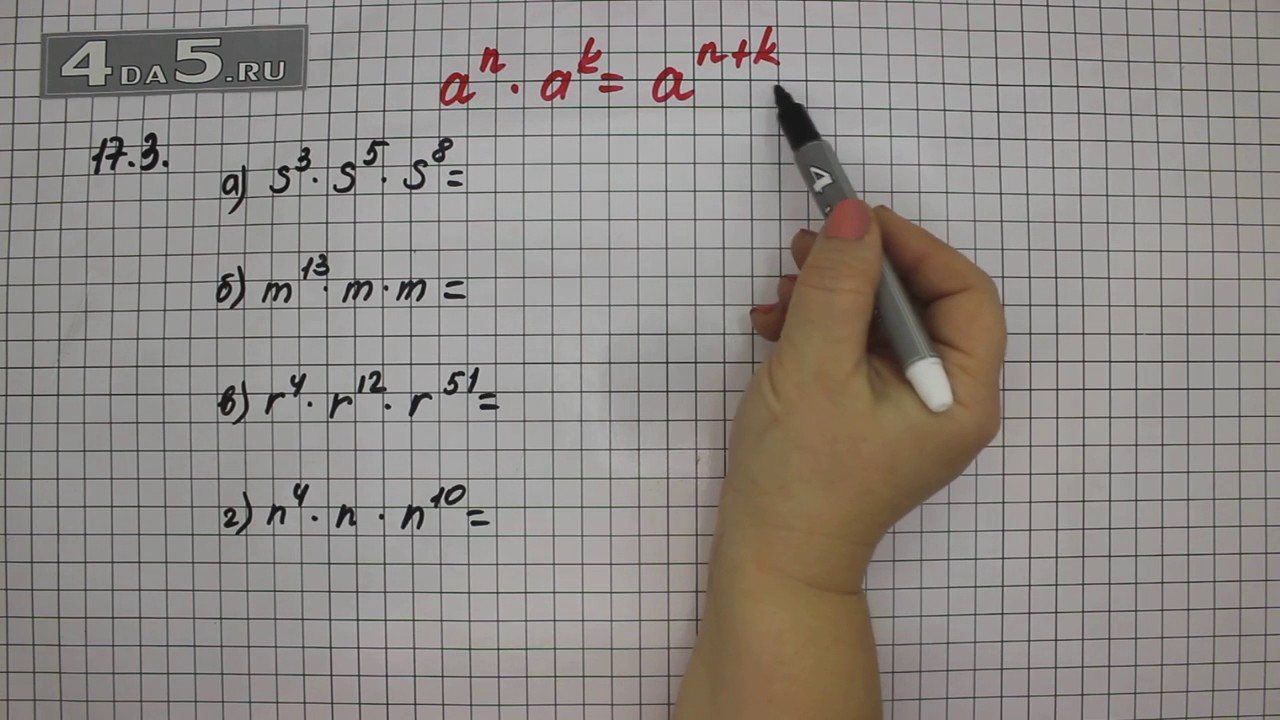 4DA5.RU
aⁿ · aᵏ = aⁿ⁺ᵏ
17.3.
а) s³ · s⁵ · s⁸ =
б) m¹³ · m · m =
в) r⁴ · r¹² · r⁵¹ =
г) n⁴ · n · n¹⁰ =
4